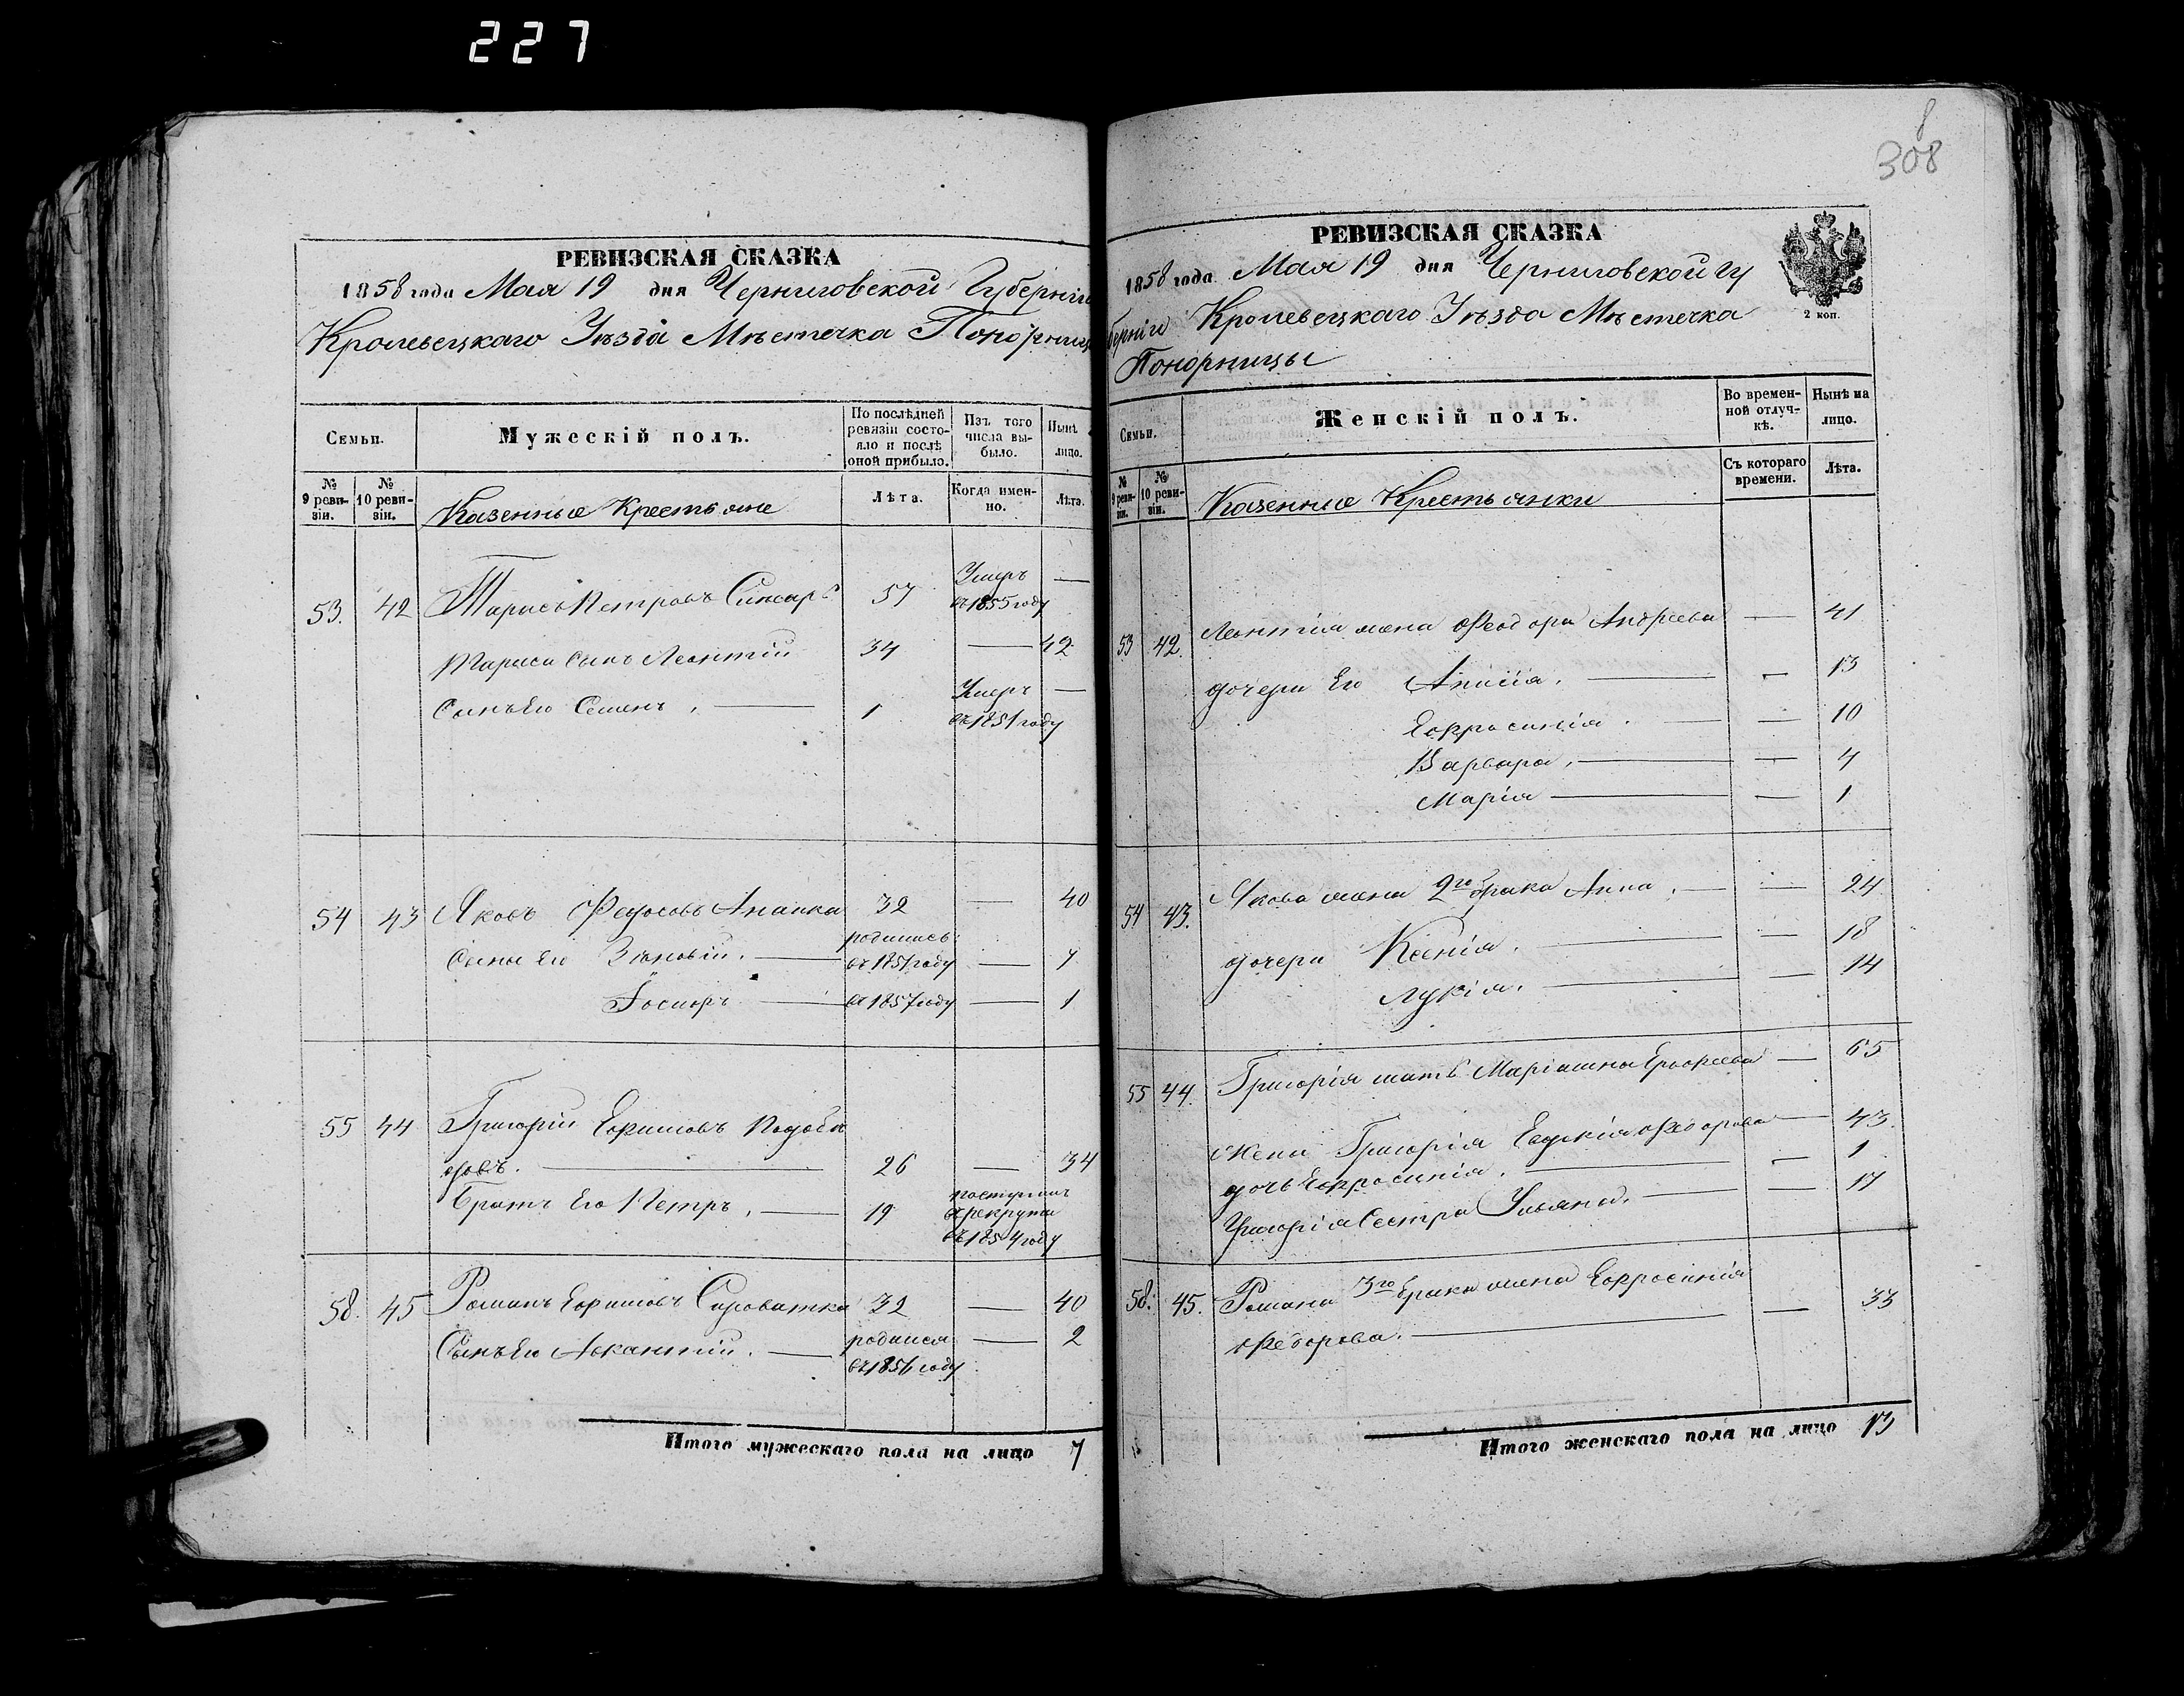 227
РЕВИЗСКАЯ СКАЗКА
1858 года Мая 19 дня Черниговской Губерніи
Кролевецкаго Уѣзда Мѣстечка Понорницы
Семьи.
Мужескій полъ.
По послѣдней ревизіи состояло и послѣ оной прибыло.
Изъ того числа выбыло.
Нынѣ лицо.
№ 9 ревизіи.
№ 10 ревизіи.
Казенные Крестьяне
Лѣта.
Когда именно.
Лѣта.
53. 42 Тарасъ Петровъ 57 Умеръ въ 1855 году —
Тараса сынъ Леонтій 34 — 42
Сынъ Его Семенъ. — 1 Умеръ въ 1851 году —
54 43 Яковъ Федосовъ Ананка 32 — 40
Сыны Его Зѣновій. — родились въ 1851 году — 7
— въ 1857 году — 1
55 44 Григорій Ефимовъ
— 26 — 34
Братъ Его Петръ. — 19 поступилъ въ рекруты въ 1854 году
58. 45 Романъ Ефимовъ Сыроватка 32 — 40
Сынъ Его — родился въ 1856 году — 2
Итого мужескаго пола на лицо 7
8
308
РЕВИЗСКАЯ СКАЗКА
1858 года Мая 19 дня Черниговской Гу
берніи Кролевецкаго Уѣзда Мѣстечка
Понорницы
2 коп.
Семьи.
Женскій полъ.
Во временной отлучкѣ.
Нынѣ на лицо.
№ 9 ревизіи.
№ 10 ревизіи.
Казенные Крестьянки
Съ котораго времени.
Лѣта.
53 42. Леонтія жена Феодора Андреева — 41
дочери Его Аписія. — — 13
Ефросинія. — — 10
Варвара. — — 4
Марія — — 1
54 43. Якова жена 2го брака Анна. — — 24
дочери Ксенія. — — 18
Лукія. — — 14
55 44. Григорія мать Маріамна — 65
Жена Григорія Евдокія Федорова — 43.
дочь Ефросинія. — — 1
Григорія Сестра Ульяна. — — 17
58. 45. Романа 3го брака жена Ефросинія
Федорова. — — 33
Итого женскаго пола на лицо 13